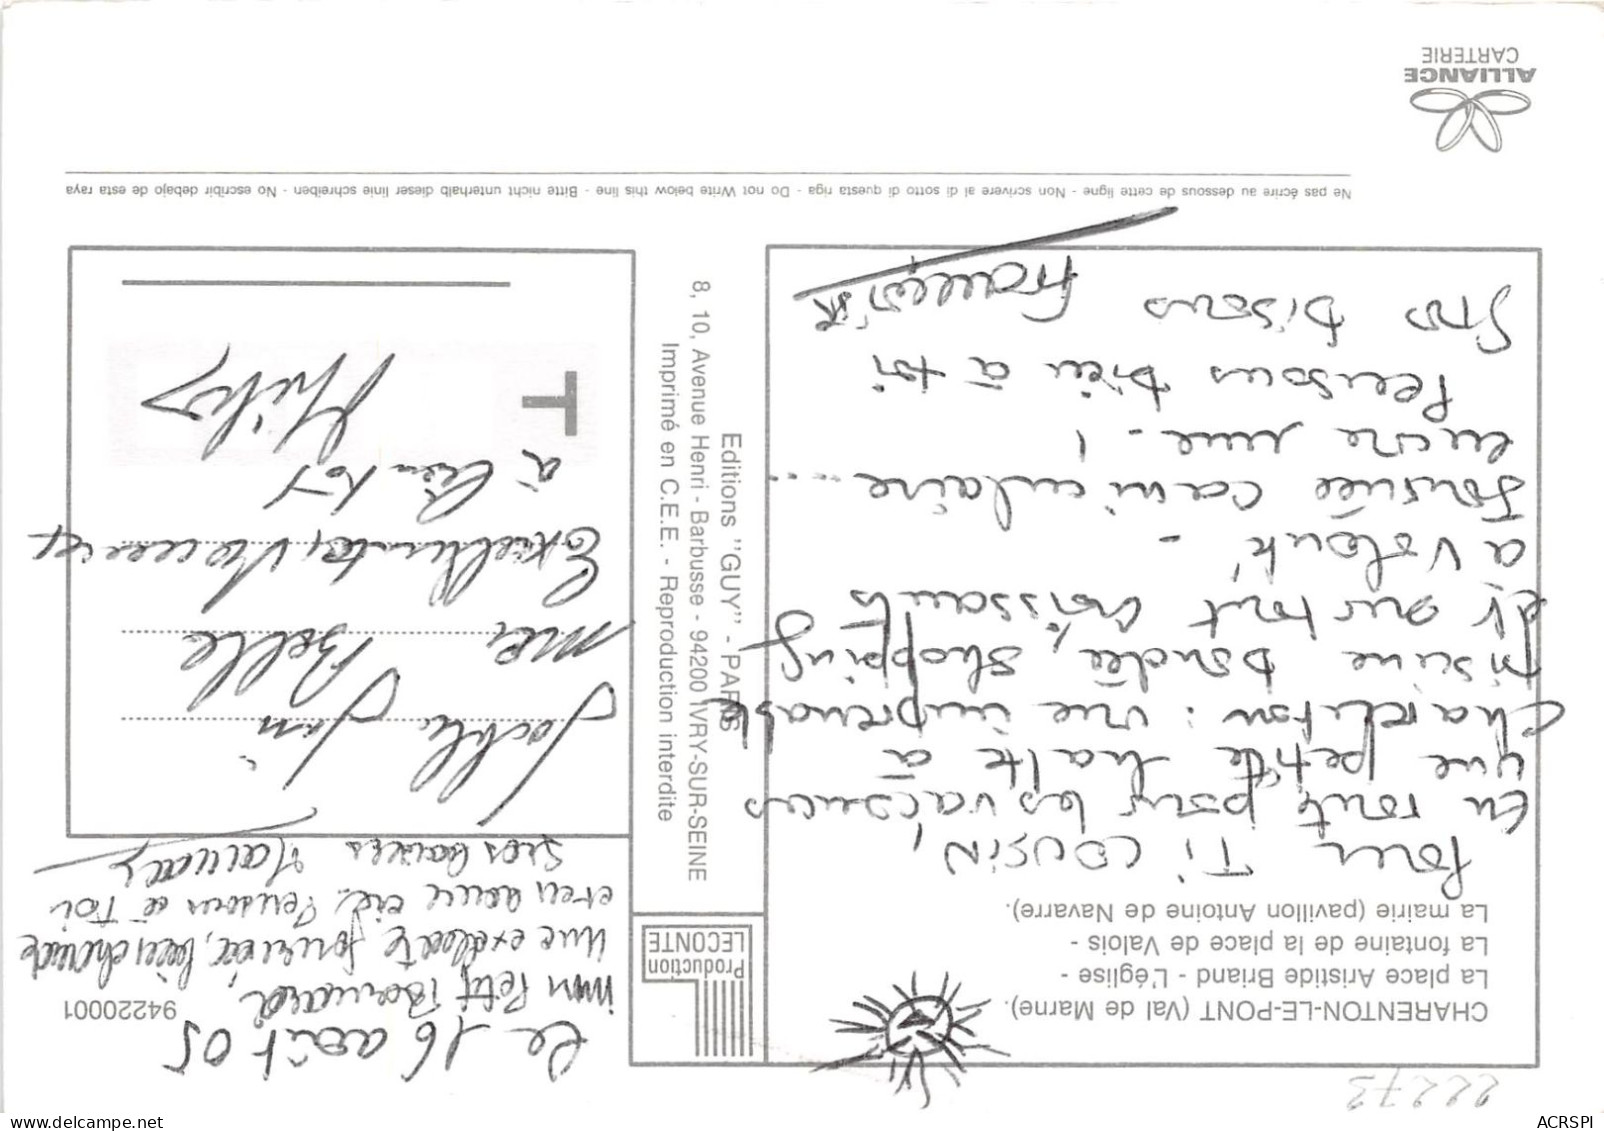 22273
CHARENTON-LE-PONT (Val de Marne).
La place Aristide Briand - L'église -
La fontaine de la place de Valois -
La mairie (pavillon Antoine de Navarre).
Pour Ti COUSIN,
En route pour les vacances
une petite halte à
Charenton : vue imprenable
piscine, bandée, shopping
et surtout croissants
a volonté -
Journée caniculaire....
encore une - !
Pensons bien à toi
Gros bisous
Production
LECONTE
Editions "GUY" - PARIS
8, 10, Avenue Henri - Barbusse - 94200 IVRY-SUR-SEINE
Imprimé en C.E.E. - Reproduction interdite
94220001
Le 16 août 05
mon Petit Bernard,
une excellente journée, bien chaude
et en douce cie. Pensons à Toi
Gros baisers Maman
ma Belle
Excellentes Vacances
à bientôt
T
Ne pas écrire au dessous de cette ligne - Non scrivere al di sotto di questa riga - Do not Write below this line - Bitte nicht unterhalb dieser linie schreiben - No escribir debajo de esta raya
ALLIANCE
CARTERIE
ACRSPI